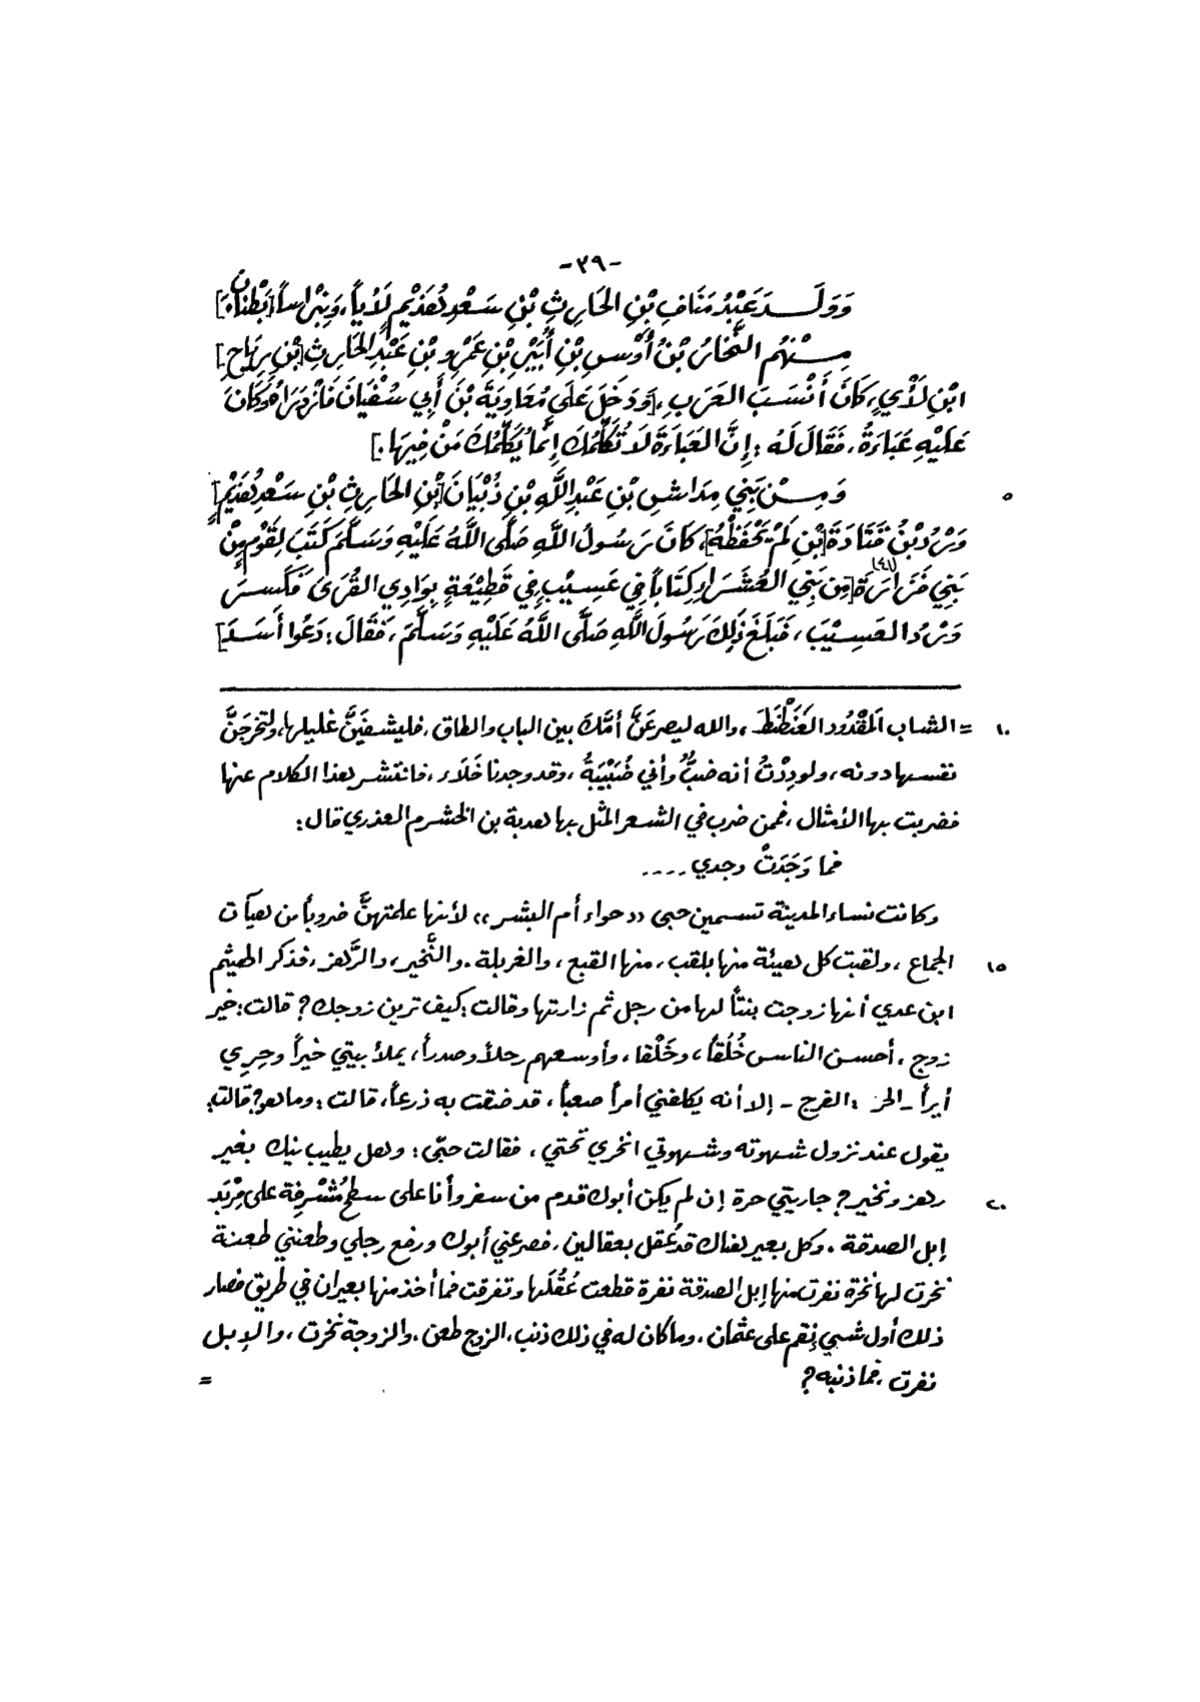 -٣٩-
وَوَلَـــدَ عَبْدُ مَنَافِ بْنِ الحَارِثِ بْنِ سَعْدِ هُذَيْمٍ لَأْياً، وَنِبْراساً [بَطْنَانِ.]
مِـــنْهُم النَّخَّارُ بْنُ أَوْسِ بْنِ أُبَيْرِ بْنِ عَمْرِو بْنِ عَبْدِ الحَارِثِ [بْنِ رِيَاحِ]
ابْنِ لَأْيٍ، كَانَ أَنْسَبَ العَرَبِ، [وَدَخَلَ عَلَى مُعَاوِيَةَ بْنَ أَبِي سُفْيَانَ فَازْدَرَاهُ وَكَانَ
عَلَيْهِ عَبَاءَةُ، فَقَالَ لَهُ: إِنَّ العَبَاءَةَ لَا تُكَلِّمُكَ إِنَّمَا يُكَلِّمُكَ مَنْ فِيهَا.]
٥ وَمِـــنْ بَنِي مِدَاشِ بْنِ عَبْدِ اللَّهِ بْنِ ذُبْيَانَ [بْنِ الحَارِثِ بْنِ سَعْدِ هُذَيْمٍ]
وَرْدُ بْنُ قَتَادَةَ [بْنِ لَمْ يَحْفَظْهُ]، كَانَ رَسُولُ اللَّهِ صَلَّى اللَّهُ عَلَيْهِ وَسَلَّمَ كَتَبَ لِقَوْمٍ مِنْ
بَنِي فَزَارَةَ (٤١) [مِن بَنِي العُشَرَاءِ] كِتَاباً فِي عَسِيْبٍ فِي قَطِيْعَةٍ بِوَادِي القُرَى فَكَسَرَ
وَرْدُ العَسِيْبَ، فَبَلَغَ ذَلِكَ رَسُولَ اللَّهِ صَلَّى اللَّهُ عَلَيْهِ وَسَلَّمَ، فَقَالَ: دَعُوا أَسَدَ]
١٠ = الشاب المَقْدُود العَنَطْنَطَ، والله ليصرعَنَّ أمَّكَ بين الباب والطاق، فليشفيَنَّ غليلها، ولتخرجَنَّ
نفسها دونه، ولودِدْتُ أنه ضبٌّ وأني ضُبَيْبَةُ، وقد وجدنا خَلَاء، فانتشر هذا الكلام عنها
فضربت بها الأمثال، فممن ضرب في الشعر المثل بها هدبة بن الخشرم العذري قال:
فما وَجَدَتْ وجدي ....
وكانت نساء المدينة تسمين حبى «حواء أم البشر» لأنها علمتهنَّ ضروباً من هيآت
١٥ الجماع، ولقبت كل هيئة منها بلقب، منها القبع، والغربلة، والنَّخير، والرَّهز، فذكر الهيثم
ابن عدي أنها زوجت بنتاً لها من رجل ثم زارتها وقالت: كيف ترين زوجك؟ قالت: خير
زوج، أحسن الناس خُلُقاً، وخَلْقا، وأوسعهم رحلاً وصدراً، يملأ بيتي خيراً وحِرِي
أيراً - الحر: الفرج - إلا أنه يكلفني أمراً صعباً، قد ضقت به ذرعاً، قالت: وما هو؟ قالت:
يقول عند نزول شهوته وشهوتي انخري تحتي، فقالت حبّى: وهل يطيب نيك بغير
٢٠ رهز ونخير؟ جاريتي حرة إن لم يكن أبوك قدم من سفر وأنا على سطح مُشْرِفة على مِرْبَد
إبل الصدقة، وكل بعير هناك قد عُقل بعقالين، فصرعني أبوك ورفع رجلي وطعنني طعنة
نخرت لها نخرة نفرت منها إبل الصدقة نفرة قطعت عُقُلَها وتفرقت فما أخذ منها بعيران في طريق فصار
ذلك أول شيء نقم على عثمان، وما كان له في ذلك ذنب، الزوج طعن، والزوجة نخرت، والإبل
نفرت، فما ذنبه؟ =